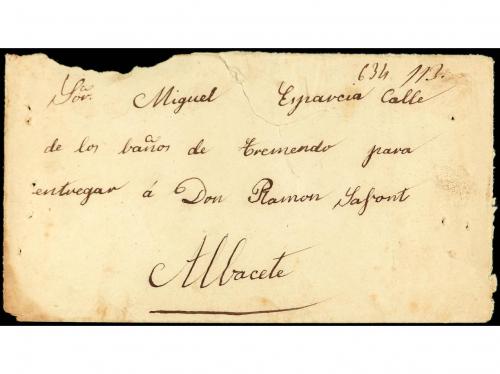 634 113.
Sor. Miguel Esparcia Calle
de los baños de Tremendo para
entregar á Don Ramon Safont
Albacete